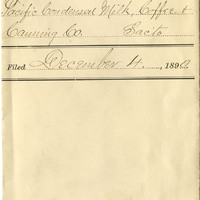 Pacific Condensed Milk, Coffee &
Canning Co. Sacto.
Filed December 4. , 1890.